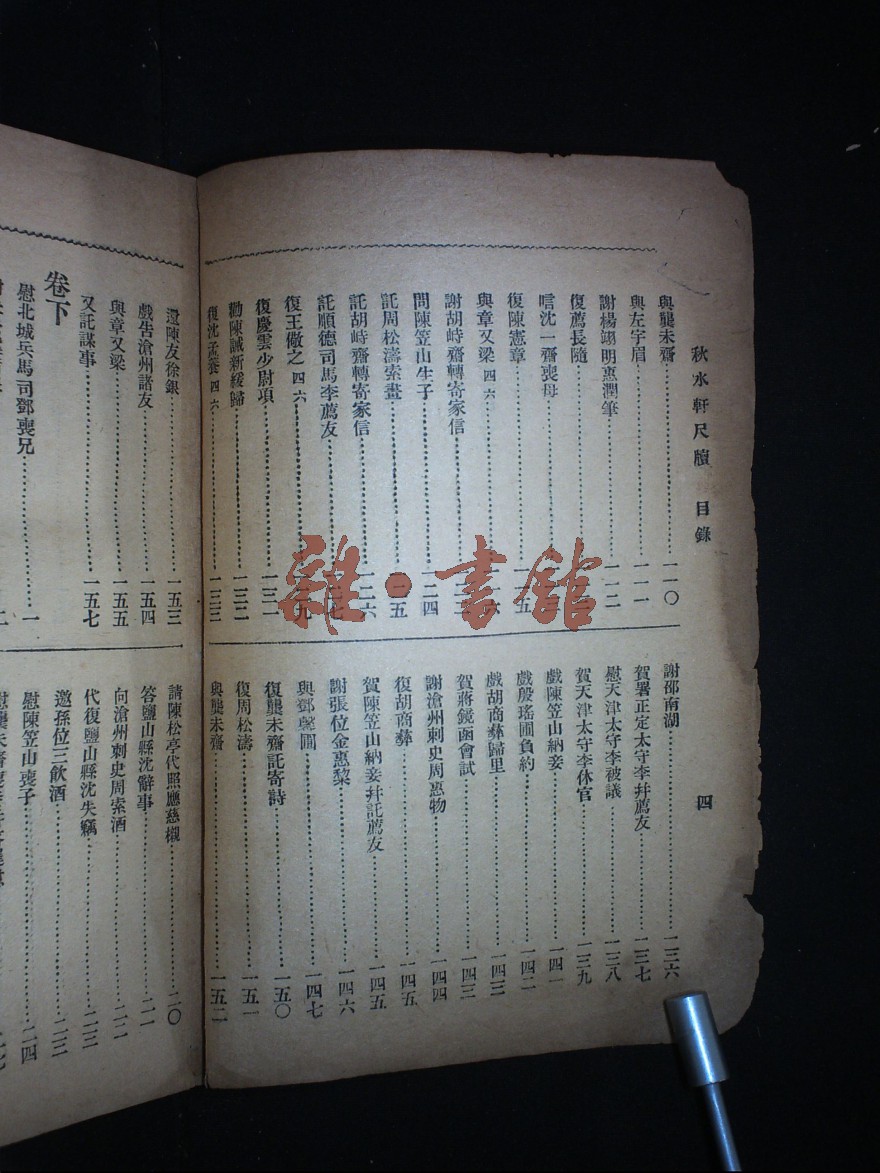 秋水軒尺牘 目錄 四
與龔未齋……一一〇
與左宇眉……一一一
謝楊翊明惠潤筆……一一二
復薦長隨
唁沈一齋喪母
復陳憲章
與章又梁四六
謝胡峙齋轉寄家信
問陳笠山生子……一二四
託周松濤索畫
託胡峙齋轉寄家信……一二六
託順德司馬李薦友
復王儆之四六
復慶雲少尉項……一三一
勸陳誠新緩歸……一三二
復沈孟養四六……一三三
謝邵南湖……一三六
賀署正定太守李幷薦友……一三七
慰天津太守李被議……一三八
賀天津太守李休官……一三九
戲陳笠山納妾……一四一
戲殷瑤圃負約……一四二
戲胡商彝歸里……一四三
賀蔣鏡函會試……一四三
謝滄州刺史周惠物……一四四
復胡商彝……一四五
賀陳笠山納妾幷託薦友……一四五
謝張位金惠梨……一四六
與鄧馨圃……一四七
復龔未齋託寄詩……一五〇
復周松濤……一五一
與龔未齋……一五二
還陳友徐銀……一五三
戲告滄州諸友……一五四
與章又梁……一五五
又託謀事……一五七
卷下
慰北城兵馬司鄧喪兄……一
請陳松亭代照應慈櫬……二〇
答鹽山縣沈辭事……二一
向滄州刺史周索酒……二二
代復鹽山縣沈失竊……二三
邀孫位三飲酒……二三
慰陳笠山喪子……二四
雜·書館